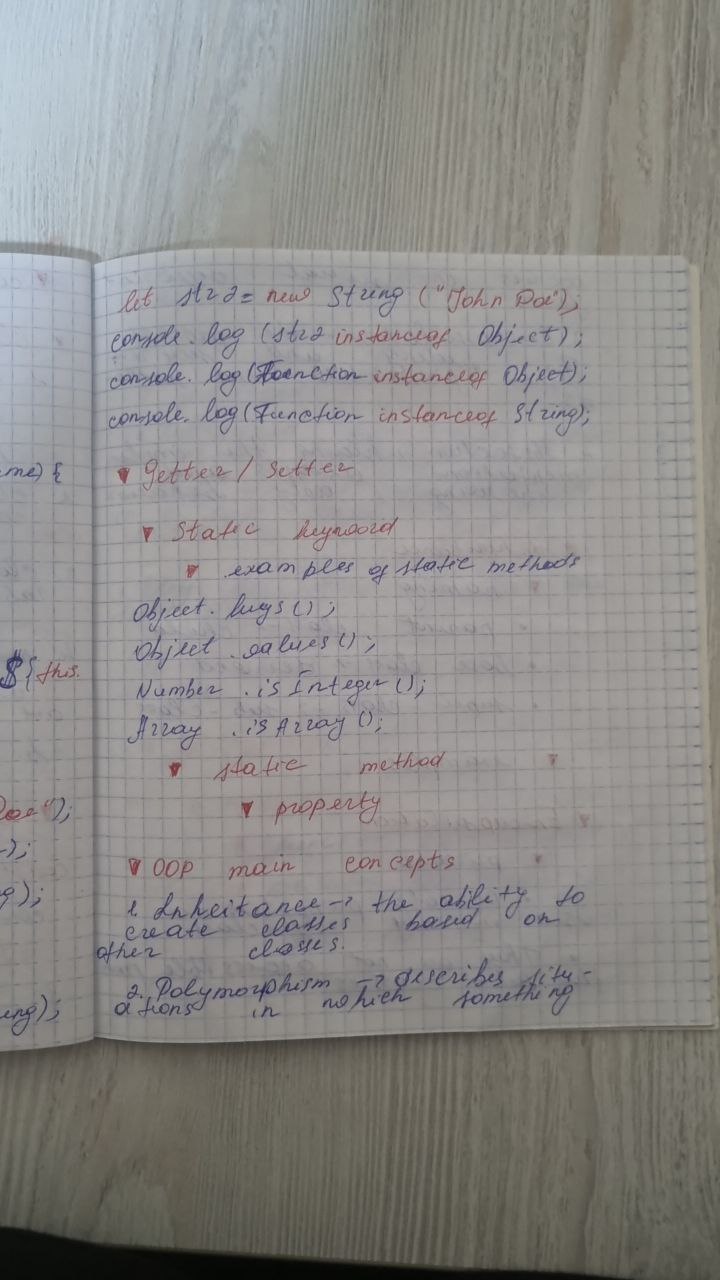 me) {
${this.
Doe");
);
g);
ing);
let str2 = new String ("John Doe");
console.log (str2 instanceof Object);
console.log(Function instanceof Object);
console.log(Function instanceof String);
▾ Getter / Setter
▾ Static keyword
▾ examples of static methods
Object.keys();
Object.values();
Number.isInteger();
Array.isArray();
▾ static method
▾ property
▾ OOP main concepts
1. Inheitance → the ability to
create classes based on
other classes.
2. Polymorphism → describes situ-
ations in which something